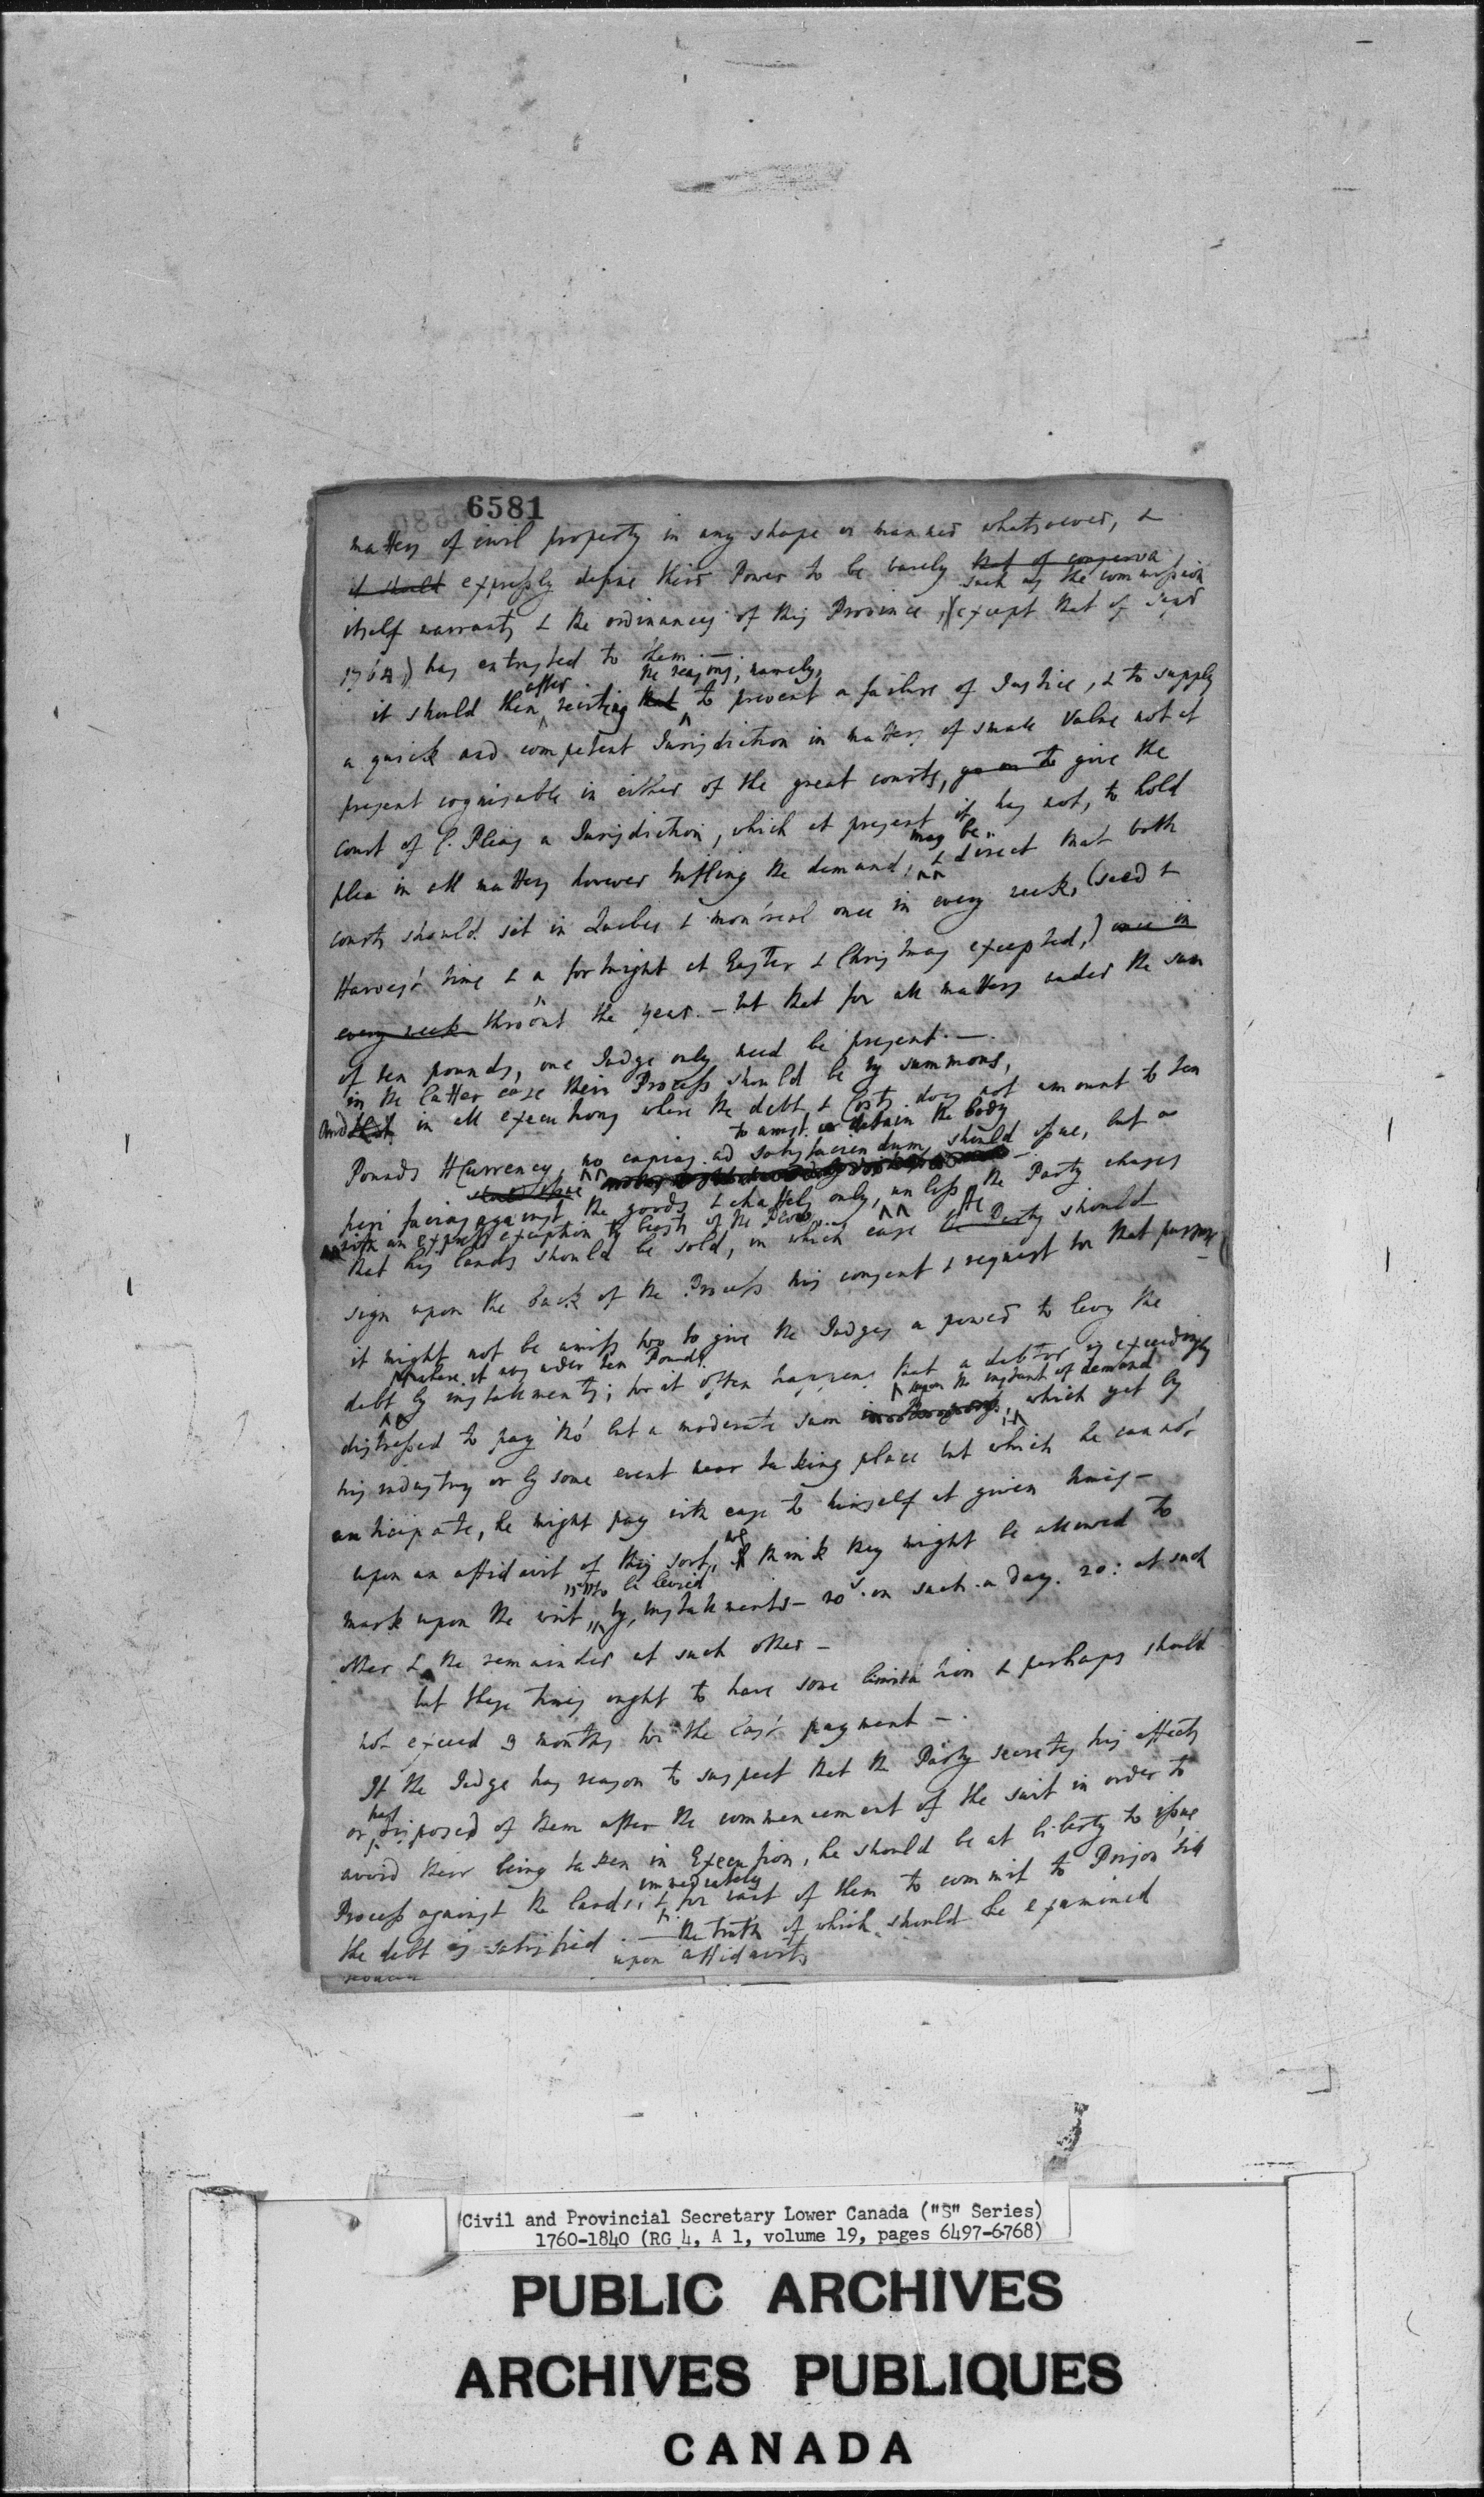 6581
matters of civil property in any shape or manner whatsoever, &
it should expressly define their Power to be barely that of conserva
such as the commission
itself warrants & the ordinances of this Province, (except that of Sepr
1764) has entrusted to them. —
after the reasons, namely,
it should then reciting that to prevent a failure of Justice, & to supply
a quick and competent Jurisdiction in matters of small Value not at
present cognisable in either of the great courts, go on to give the
court of C. Pleas a Jurisdiction, which at present it has not, to hold
may be
plea in all matters however trifling the demand, & direct that both
courts should sit in Quebec & Montreal once in every week, (seed &
Harvest time & a fortnight at Easter & Christmas excepted,) once in
every week thro'out the year. — but that for all matters under the sum
of ten pounds, one Judge only need be present. —
in the latter case their Process should be by summons,
and that in all executions where the debt & Costs does not amount to ten
to arrest or detain the body
Pounds H Currency, no capias ad satisfaciendum should issue, but a
should issue
fieri facias against the goods & chattels only, unless the Party chuses
with an express exception to beasts of the Plow
He
that his lands should be sold, in which case the Party should
sign upon the back of the Process his consent & request for that purpose
it might not be amiss too to give the Judges a power to levy the
where it was under ten Pounds.
debt by installments; for it often happens that a debtor is exceedingly
upon the instant of demand
distressed to pay tho' but a moderate sum, which yet by
his industry or by some event near taking place but which he cannot
anticipate, he might pay with ease to himself at given times —
we
upon an affidavit of this sort, I think they might be allowed to
to be levied
mark upon the writ, by installments — 20s. on such a day. 20: at such
other & the remainder at such other —
but these times ought to have some limitation & perhaps should
not exceed 3 months for the last payment —.
If the Judge has reason to suspect that the Party secretes his effects
has
or disposed of them after the commencement of the suit in order to
avoid their being taken in Execution, he should be at liberty to issue
immediately
Process against the lands, & for want of them to commit to Prison till
the debt is satisfied. — the truth of which should be examined
upon affidavits
Civil and Provincial Secretary Lower Canada ("S" Series)
1760-1840 (RG 4, A 1, volume 19, pages 6497-6768)
PUBLIC ARCHIVES
ARCHIVES PUBLIQUES
CANADA